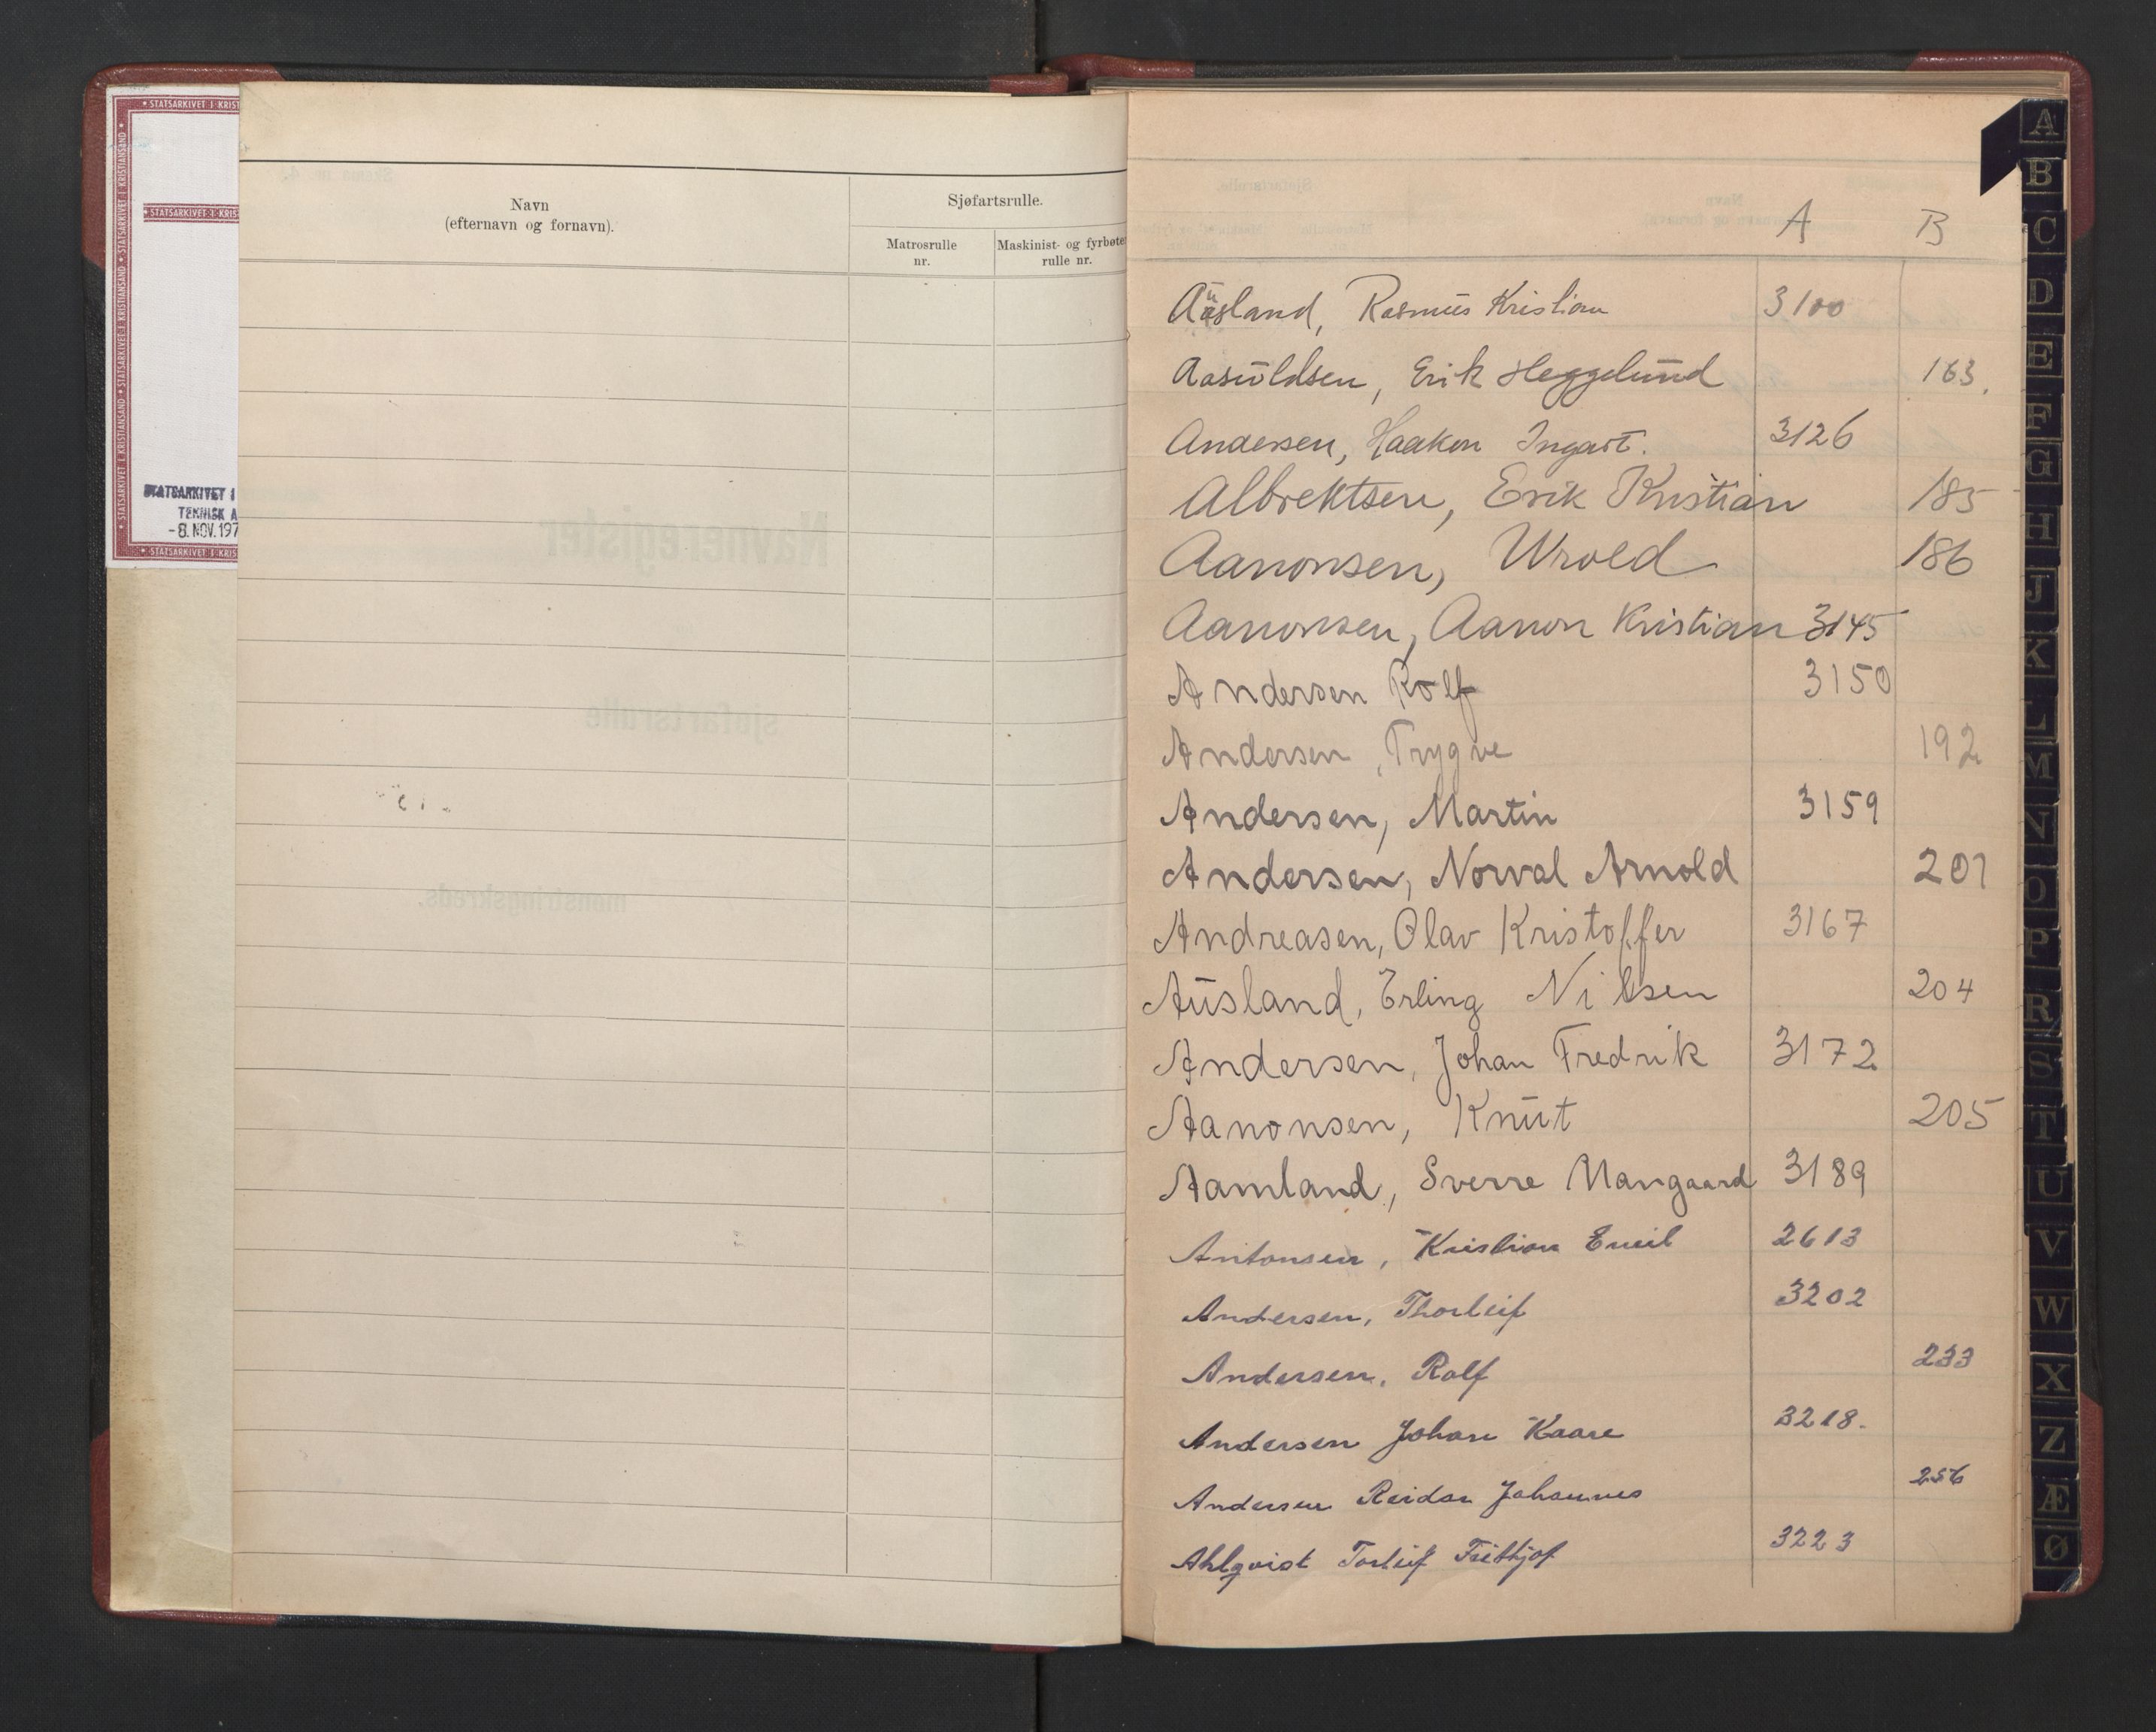 STATSARKIVET I KRISTIANSAND
STATSARKIVET I
TEKNISK A
-8. NOV. 197
Navn
(efternavn og fornavn).
Sjøfartsrulle.
Matrosrulle
nr.
Maskinist- og fyrbøter
rulle nr.
Navneregister
sjøfartsrulle
mønstringskreds.
A B
Ausland, Rasmus Kristian 3100
Aasuldsen, Erik Heggelund 163.
Andersen, Haakon Ingart. 3126
Albrektsen, Erik Kristian 185
Aanonsen, Wrold 186
Aanonsen, Aanon Kristian 3145
Andersen Rolf 3150
Andersen, Trygve 192
Andersen, Martin 3159
Andersen, Norval Arnold 201
Andreasen, Olav Kristoffer 3167
Ausland, Erling Nilsen 204
Andersen, Johan Fredrik 3172
Aanonsen, Knut 205
Aamland, Sverre Mangaard 3189
Antonsen, Kristian Emil 2613
Andersen, Thorleif 3202
Andersen, Rolf 233
Andersen Johan Kaare 3218.
Andersen Reidar Johannes 256
Ahlqvist Torleif Frithjof 3223
A
B
C
D
E
F
G
H
J
K
L
M
N
O
P
R
S
T
U
V
W
X
Z
Æ
Ø